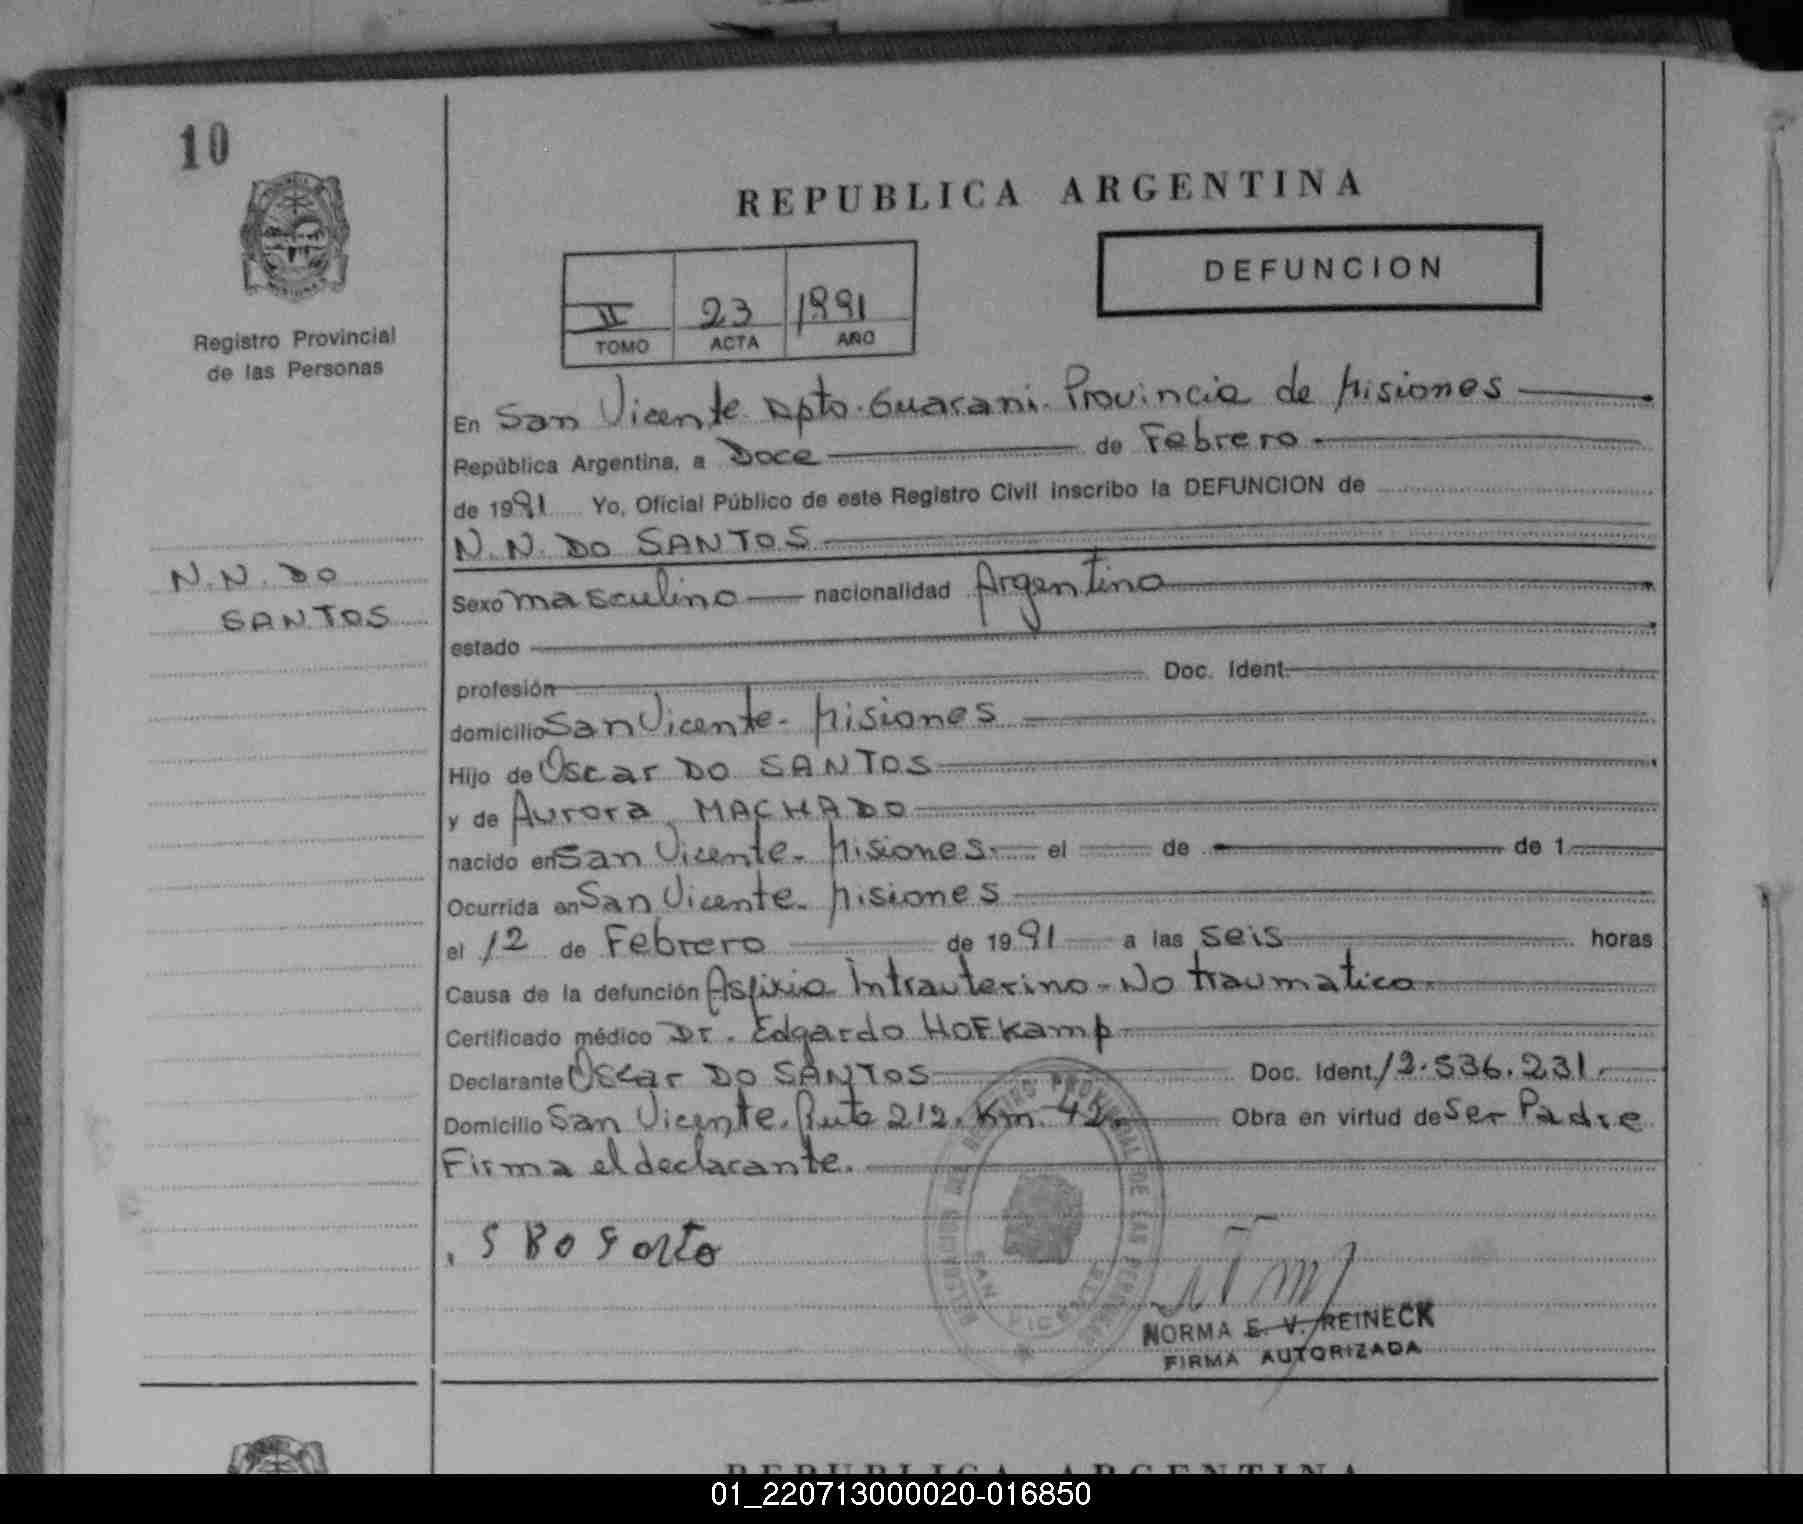 10
REPUBLICA ARGENTINA
DEFUNCION
II 23 1991
TOMO ACTA AÑO
Registro Provincial
de las Personas
En San Vicente Dpto. Guarani. Provincia de Misiones
República Argentina, a Doce de Febrero
de 1991 Yo, Oficial Público de este Registro Civil inscribo la DEFUNCION de
N.N. DO SANTOS
N.N. DO
SANTOS
Sexo masculino nacionalidad Argentina
estado
profesión Doc. Ident.
domicilio San Vicente - Misiones
Hijo de Oscar DO SANTOS
y de Aurora MACHADO
nacido en San Vicente - Misiones. el de de 1
Ocurrida en San Vicente - Misiones
el 12 de Febrero de 1991 a las seis horas
Causa de la defunción Asfixia Intrauterino - No traumatico.
Certificado médico Dr. Edgardo HOFKamp
Declarante Oscar DO SANTOS Doc. Ident. 12.536.231.
Domicilio San Vicente. Ruta 212. Km. 42. Obra en virtud de Ser Padre
Firma el declarante.
REGISTRO PROVINCIAL DE LAS PERSONAS
SAN VICENTE
NORMA E. V. REINECK
FIRMA AUTORIZADA
REPUBLICA ARGENTINA
01_220713000020-016850